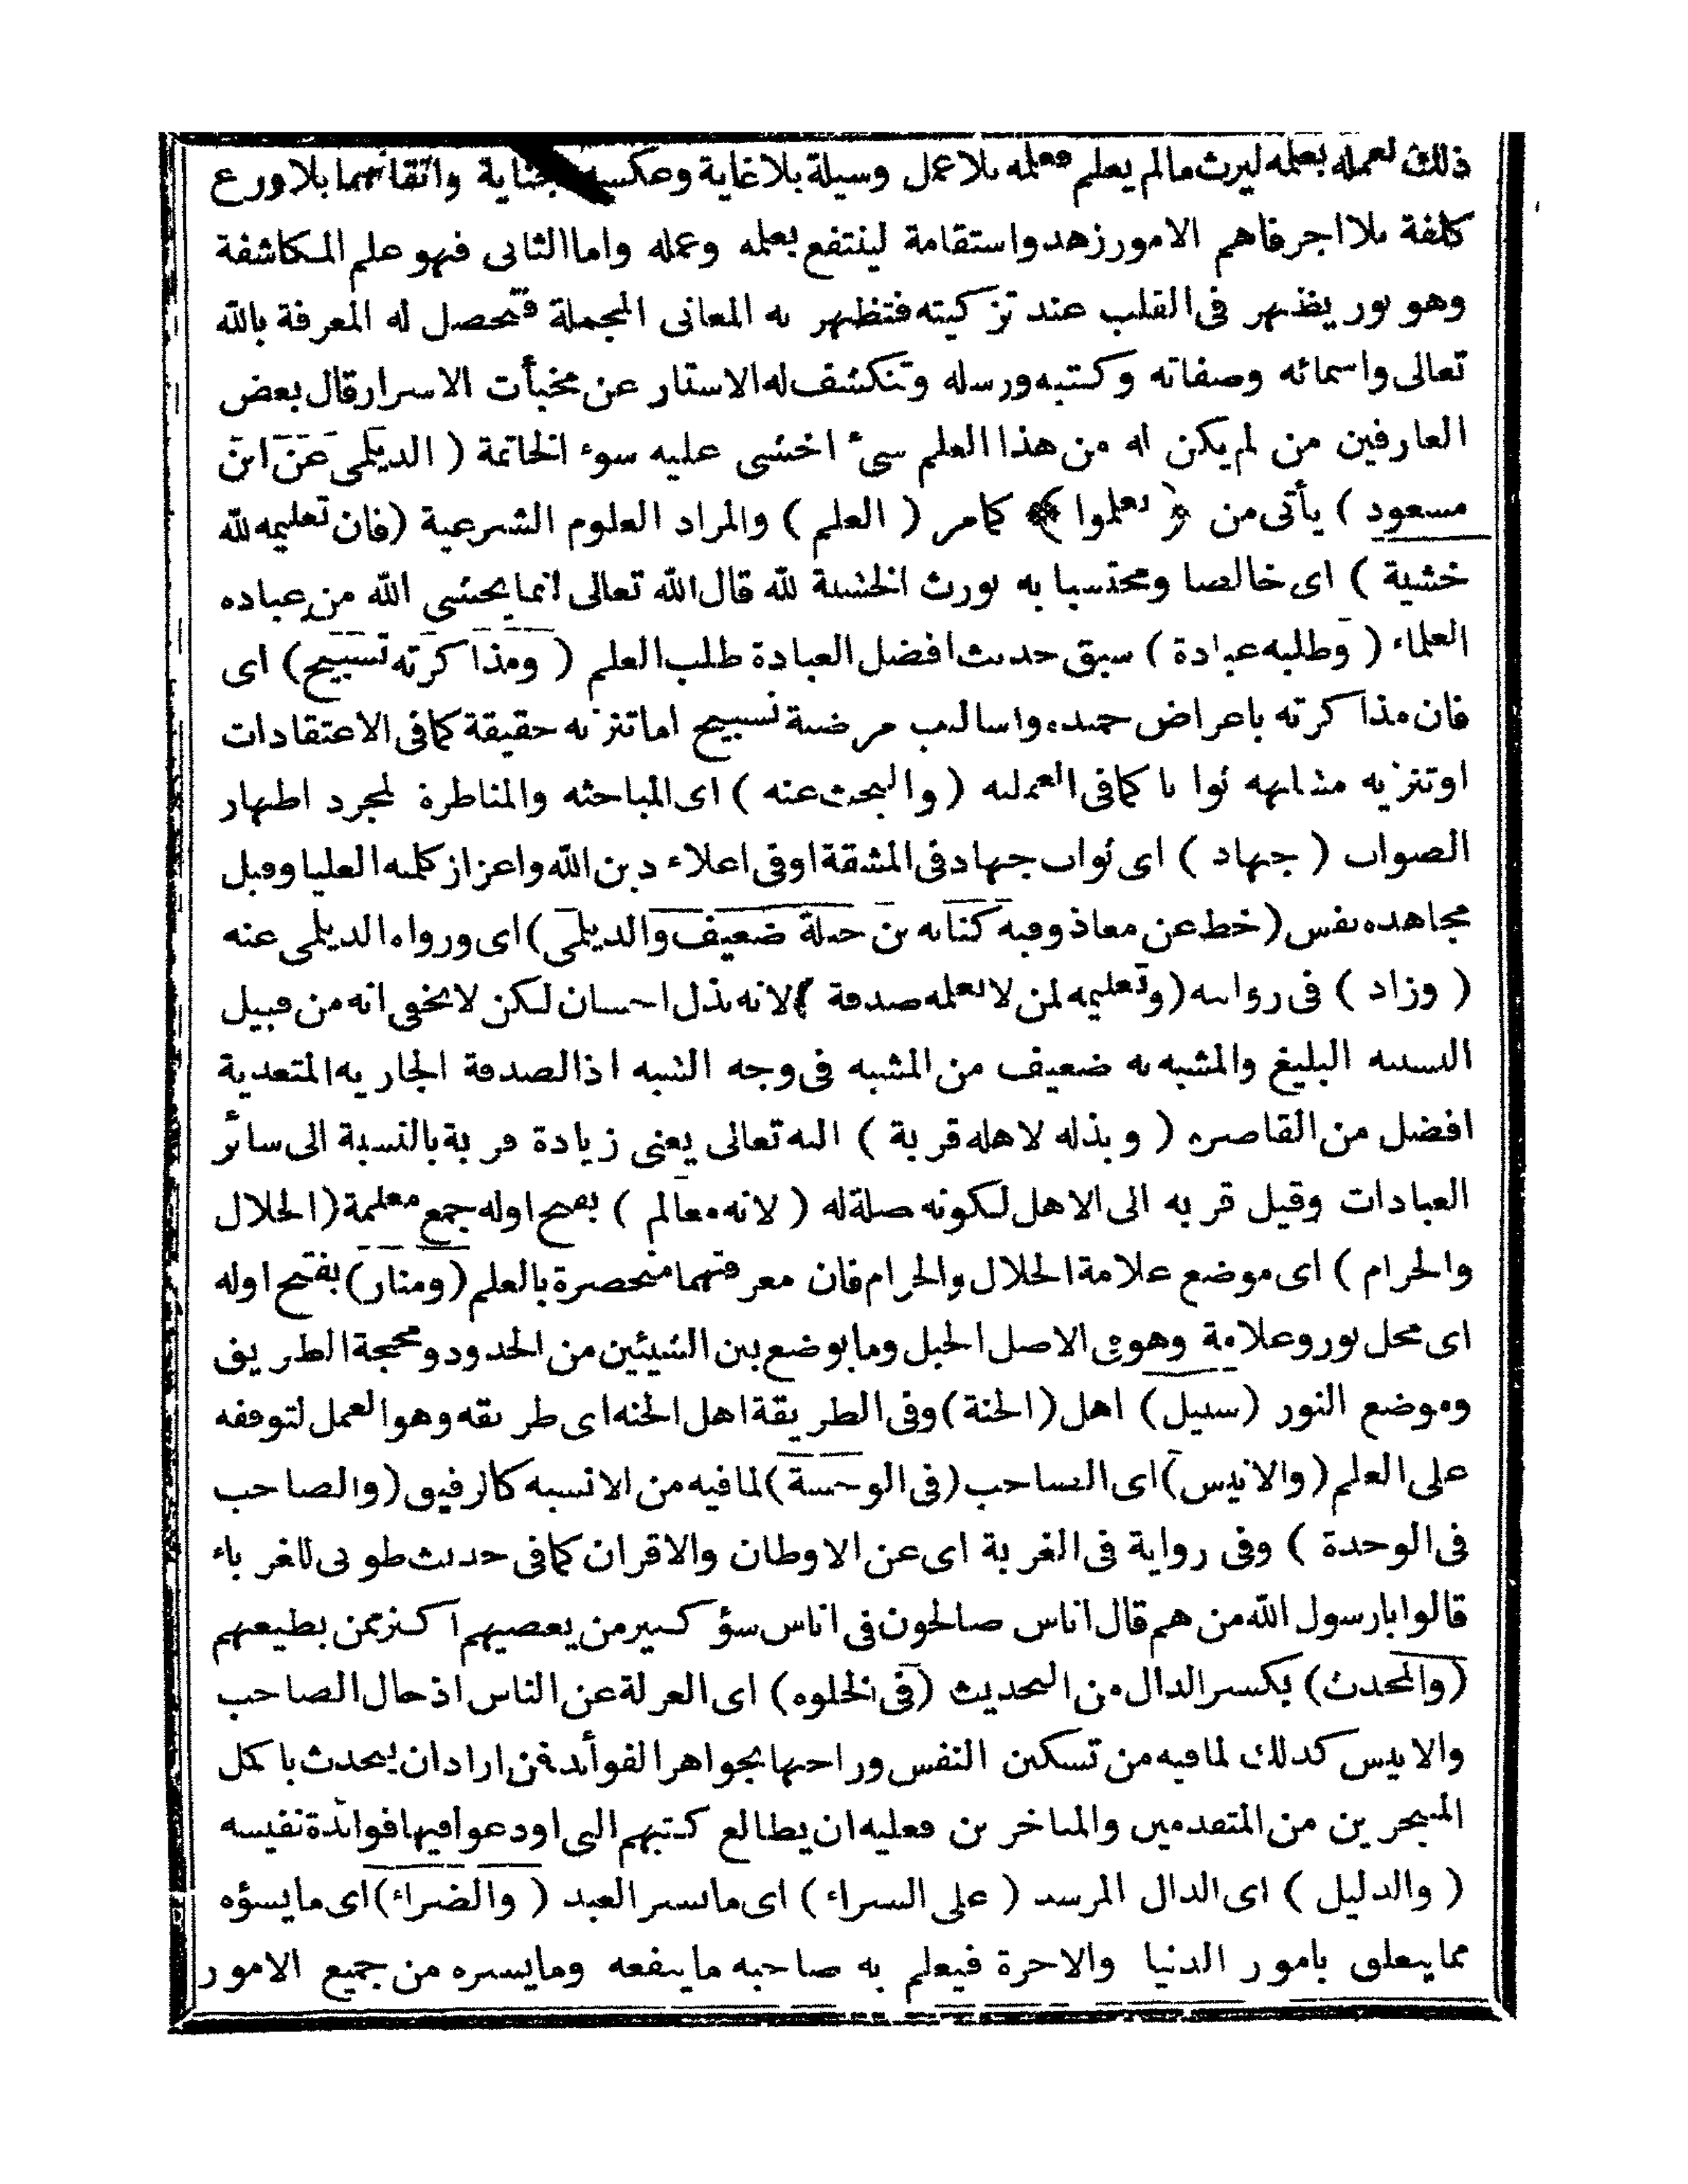 ذلك لعمله بعلمه ليرث مالم يعلم فعلمه بلا عمل وسيلة بلا غاية وعكسه جناية واتقانهما بلا ورع
كلفة بلا اجر فاهم الامور زهد واستقامة لينتفع بعلمه وعمله واما الثانى فهو علم المكاشفة
وهو نور يظهر فى القلب عند تزكيته فتظهر به المعانى المجملة فتحصل له المعرفة بالله
تعالى واسمائه وصفاته وكتبه ورسله وتنكشف له الاستار عن مخبأت الاسرار قال بعض
العارفين من لم يكن له من هذا العلم شىء اخشى عليه سوء الخاتمة ( الديلمى عن ابن
مسعود ) يأتى من ﴿ تعلموا ﴾ كما مر ( العلم ) والمراد العلوم الشرعية (فان تعليمه لله
خشية ) اى خالصا ومحتسبا به يورث الخشية لله قال الله تعالى انما يخشى الله من عباده
العلماء ( وطلبه عبادة ) سبق حديث افضل العبادة طلب العلم ( ومذاكرته تسبيح) اى
فان مذاكرته باعراض حميدة واساليب مرضية تسبيح اما تنزيه حقيقة كما فى الاعتقادات
او تنزيه مشابهه ثوابا كما فى العمليه ( والبحث عنه ) اى المباحثه والمناظرة لمجرد اظهار
الصواب ( جهاد ) اى ثواب جهاد فى المشقة او فى اعلاء دين الله واعزاز كلمه العليا وقيل
مجاهده نفس (خط عن معاذ وفيه كنانه بن جبلة ضعيف والديلمى) اى ورواه الديلمى عنه
( وزاد ) فى روايته (وتعليمه لمن لا يعلمه صدقة ) لانه بذل احسان لكن لا يخفى انه من قبيل
التشبيه البليغ والمشبه به ضعيف من المشبه فى وجه الشبه اذ الصدقة الجاريه المتعدية
افضل من القاصره ( وبذله لاهله قربة ) اليه تعالى يعنى زيادة قربة بالنسبة الى سائر
العبادات وقيل قربه الى الاهل لكونه صلة له ( لانه معالم ) بفتح اوله جمع معلمة (الحلال
والحرام ) اى موضع علامة الحلال والحرام فان معرفتهما منحصرة بالعلم (ومنار) بفتح اوله
اى محل نور وعلامة وهو فى الاصل الجبل وما يوضع بين الشيئين من الحدود ومحجة الطريق
وموضع النور (سبيل) اهل (الجنة) وفى الطريقة اهل الجنه اى طريقه وهو العمل لتوقفه
على العلم (والانيس) اى الصاحب (فى الوحشة) لما فيه من الانسيه كالرفيق (والصاحب
فى الوحدة ) وفى رواية فى الغربة اى عن الاوطان والاقران كما فى حديث طوبى للغرباء
قالوا يا رسول الله من هم قال اناس صالحون فى اناس سؤ كبير من يعصيهم اكثر ممن يطيعهم
(والمحدث) بكسر الدال من التحديث (فى الخلوه) اى العزلة عن الناس اذ حال الصاحب
والانيس كذلك لما فيه من تسكين النفس وراحتها بجواهر الفوائد فمن اراد ان يتحدث باكمل
المتبحرين من المتقدمين والمتاخرين فعليه ان يطالع كتبهم التى اودعوا فيها فوائدة نفيسه
( والدليل ) اى الدال المرشد ( على السراء ) اى ما يسر العبد ( والضراء) اى ما يسؤه
مما يتعلق بامور الدنيا والاخرة فيعلم به صاحبه ما ينفعه وما يسره من جميع الامور